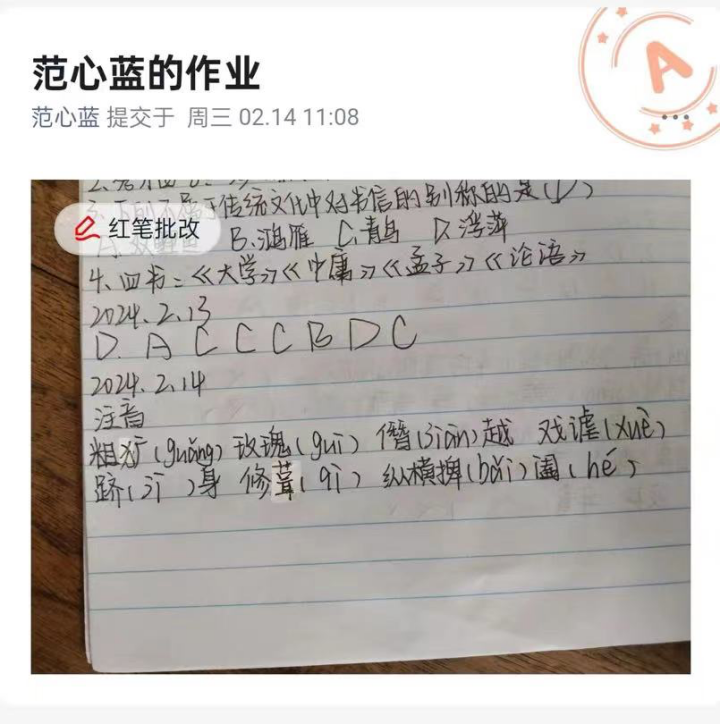 范心蓝的作业
范心蓝 提交于 周三 02.14 11:08
A
3、下列不属于传统文化中对书信的别称的是(D)
红笔批改
B.鸿雁 C.青鸟 D.浮萍
4、四书：《大学》《中庸》《孟子》《论语》
2024.2.13
D. A C C C B D C
2024.2.14
注音
粗犷(guǎng) 玫瑰(guī) 僭(jiàn)越 戏谑(xuè)
跻(jī )身 修葺(qì) 纵横捭(bǎi)阖(hé)